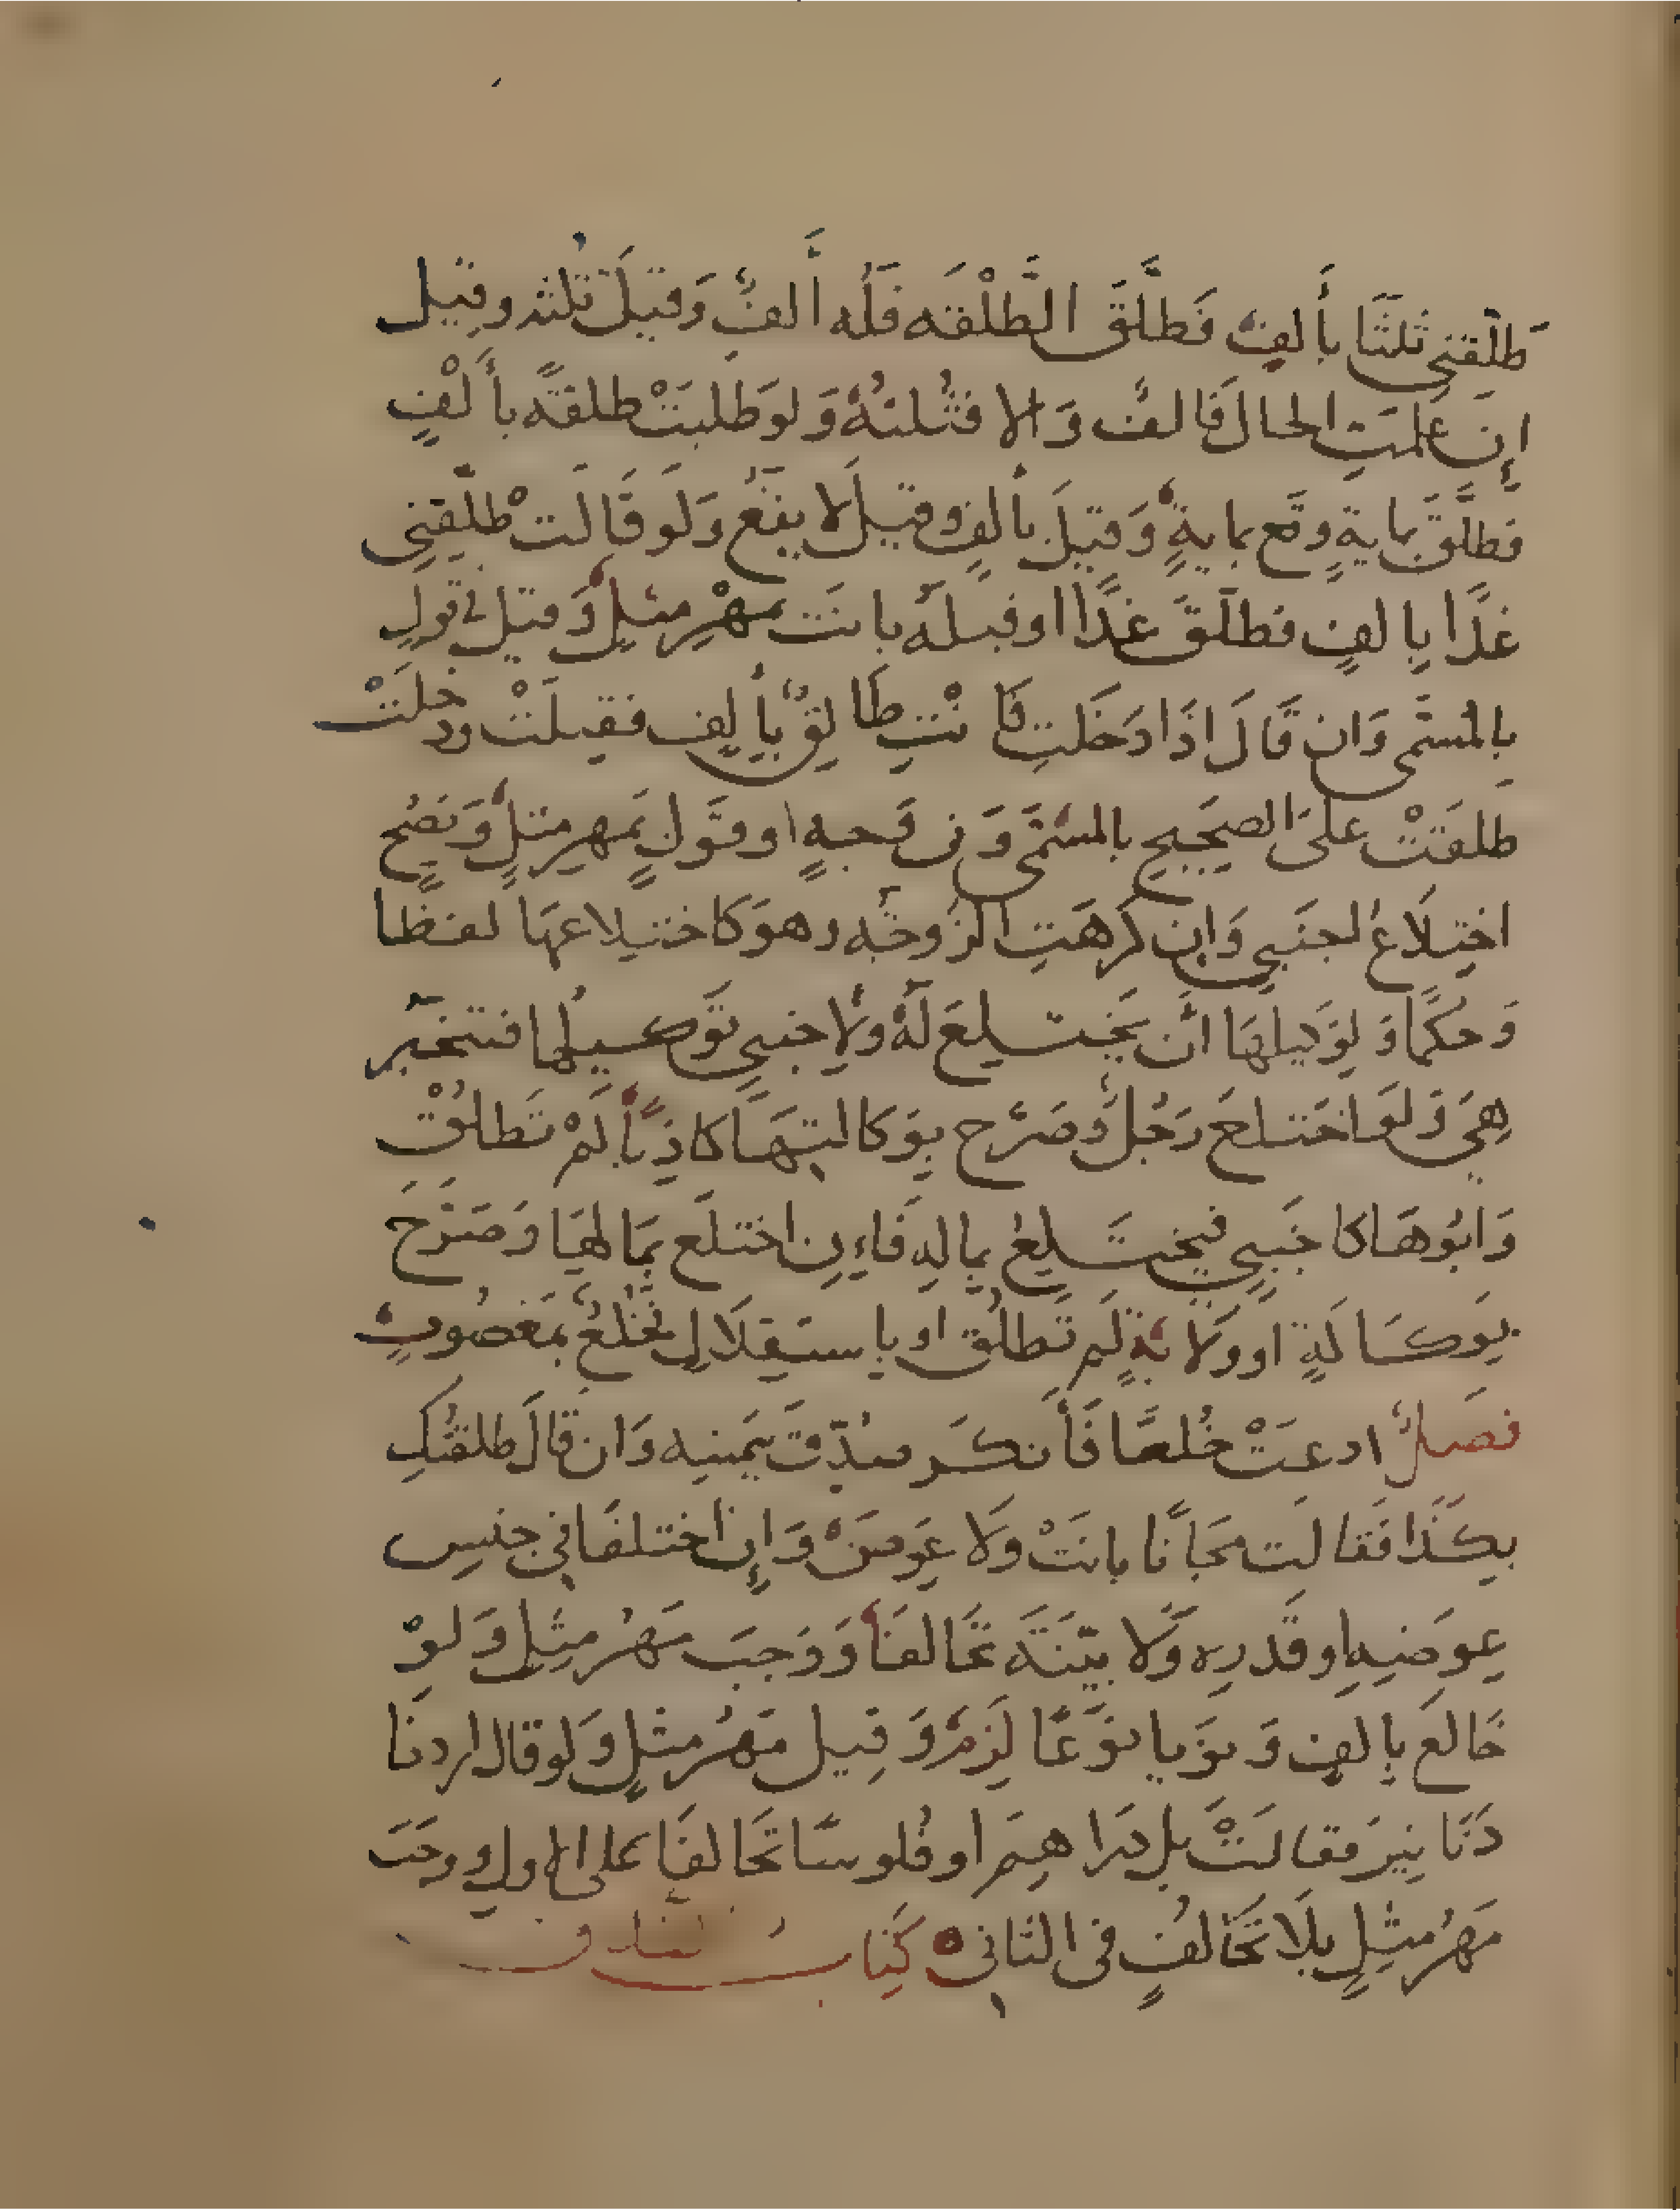 طَلِّقني ثلثًا بأَلفٍ فَطلَّقَ الطَّلْقَه فَلَه أَلفٌ وَقيلَ ثُلثه وقيل
إِن عَلمَتِ الحالَ فَالفٌ وَالا فثُلثهُ وَلو طَلبَتْ طلقةً بأَلْفٍ
فطلَّقَ بمايةٍ وقَع بمايةٍ وَقيلَ بأَلفٍ وقيلَ لا يقَعُ وَلَو قَالَت طلّقِني
غدًا بالفٍ فطلّقَ غدًا او قبلَهُ بانَت بمهْرِ مثلٍ وَقيل في قولٍ
بالمُسَمّى وَان قَالَ اذَا دَخَلتِ فَانْتِ طَالِقٌ بأَلفٍ فقبلَتْ ودخلَتْ
طلقَتْ علىَ الصحِيحِ بالمسَمَّى وَفى وَجهٍ او قَولٍ بمهرِ مثلٍ وَتصِح
اختلَاعُ اجنَبي وَإن كَرهَتِ الزوجَه وهوَ كاختلاعهَا لفظًا
وَحكمًا وَلوَكيلهَا انَّ يَختلِعَ لَهُ ولاجنبي تَوكيلها فتتخيّر
هِيَ وَلَو اختلعَ رَجُلٌ وَصَرّح بوَكالتهَا كاذِبًا لَمْ تَطلُقْ
وَابُوهَا كاجنَبي فيختَلِعُ بمالِهِ فَاءِن اختلَع بمَالهَا وَصَرَّحَ
بوَكالَةٍ او وَلايَةٍ لَم تَطلُق او باستقِلَالٍ فَخُلعٌ بمَغصُوبٍ
فصَلٌ ادعَتْ خُلعًا فَأَنكَر صُدّقَ بيَمينِه وَان قَالَ طلقتُكِ
بكَذا فَقالَت مَجَانًا بانَتْ وَلَا عِوَضَ وَإِن اختلفَا في جنسِ
عِوَضِه او قَدرِه وَلَا بيّنَةَ تَحَالَفَا وَوَجبَ مَهْرُ مثلٍ وَلوْ
خَالعَ بالفٍ وَنوَيا نوَعًا لَزِمَ وَقِيلَ مَهْرُ مثلٍ وَلو قال اردنَا
دَنَانِيرَ فقالَتْ بل دَرَاهِمَ او فُلوسًا تَحَالفَا على الاول وَجَبَ
مَهرُ مثلٍ بلَا تَحَالفٍ فى الثانى كِتَاب الطلاق